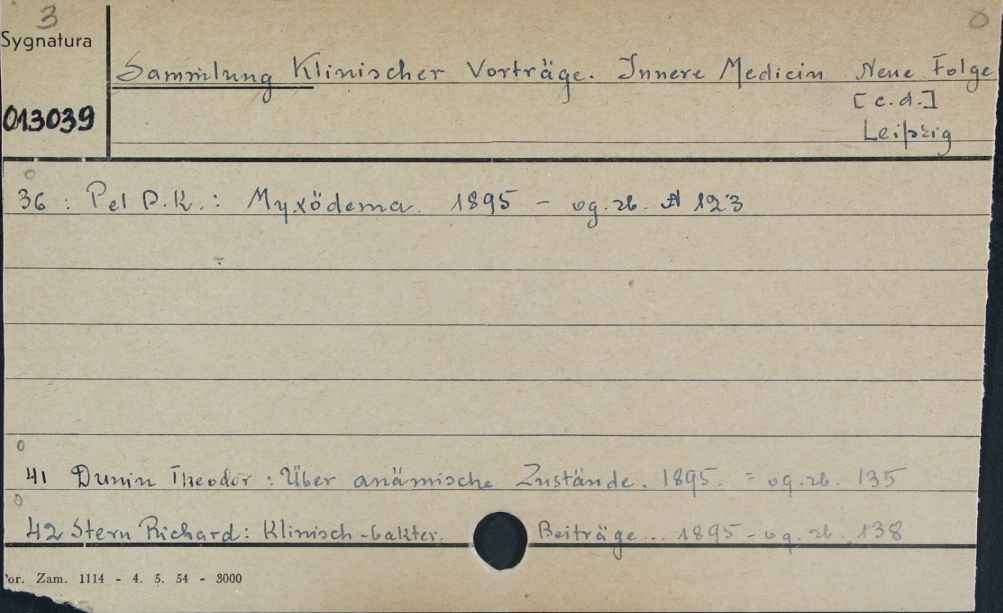 3
Sygnatura
Sammlung Klinischer Vorträge. Innere Medicin Neue Folge
[c.d.]
013039
Leipzig
36 : Pel P.K.: Myxödema. 1895 - og. zb. A 123
41 Dunin Theodor: Über anämische Zustände. 1895. = og. zb. 135
42 Stern Richard: Klinisch-bakter. Beiträge... 1895 - og. zb. 138
or. Zam. 1114 - 4. 5. 54 - 3000